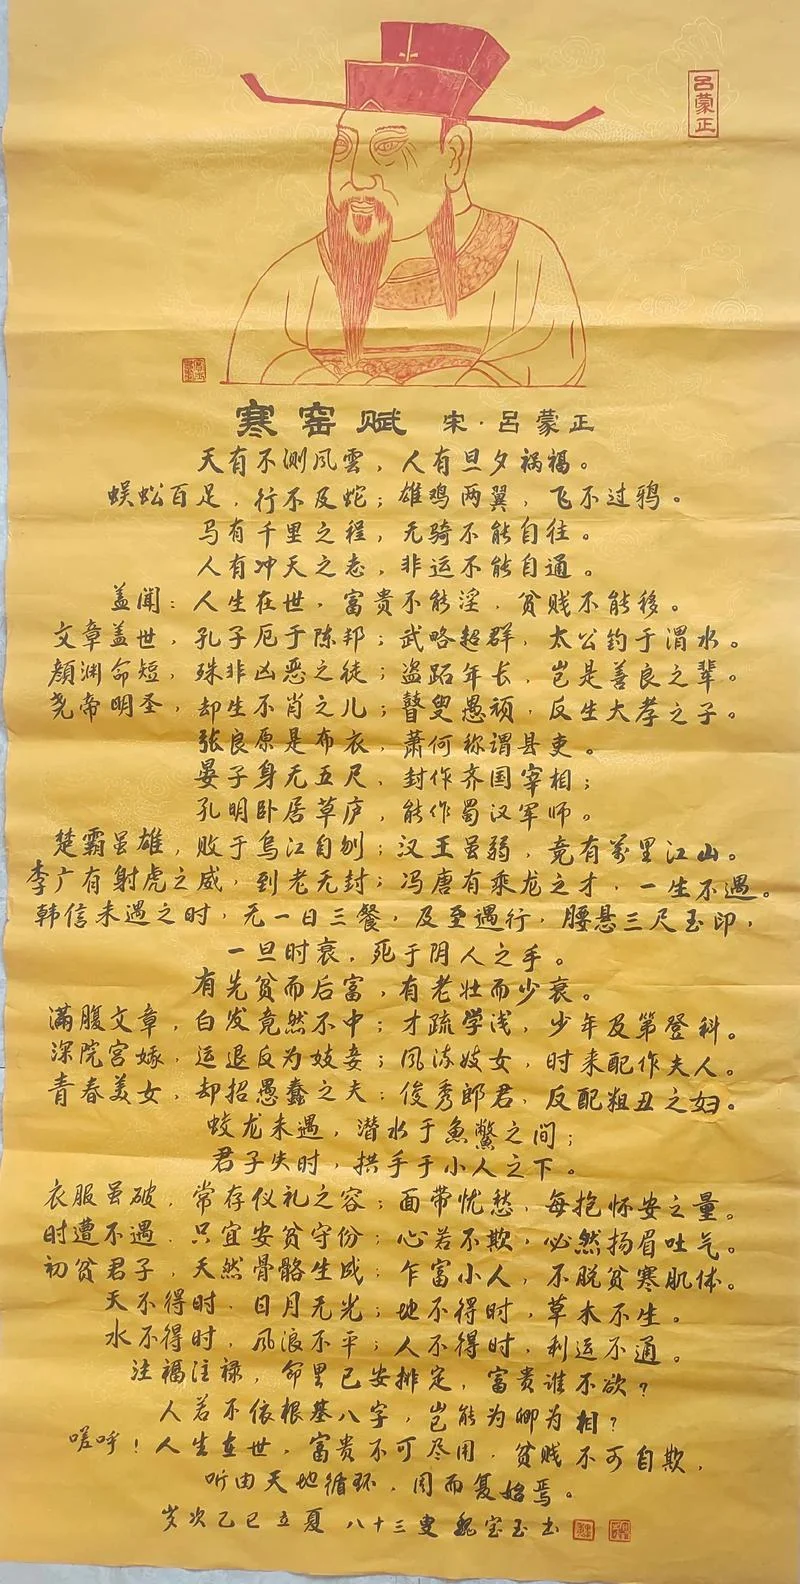 呂蒙正
寒窑赋 宋·呂蒙正
天有不测风雲，人有旦夕祸福。
蜈蚣百足，行不及蛇；雄鸡两翼，飞不过鸦。
马有千里之程，无骑不能自往。
人有冲天之志，非运不能自通。
盖闻：人生在世，富贵不能淫，贫贱不能移。
文章盖世，孔子厄于陈邦；武略超群，太公钓于渭水。
颜渊命短，殊非凶恶之徒；盗跖年长，岂是善良之辈。
尧帝明圣，却生不肖之儿；瞽叟愚顽，反生大孝之子。
张良原是布衣，萧何称谓县吏。
晏子身无五尺，封作齐国宰相；
孔明卧居草庐，能作蜀汉军师。
楚霸虽雄，败于乌江自刎；汉王虽弱，竟有萬里江山。
李广有射虎之威，到老无封；冯唐有乘龙之才，一生不遇。
韩信未遇之时，无一日三餐，及至遇行，腰悬三尺玉印，
一旦时衰，死于阴人之手。
有先贫而后富，有老壮而少衰。
满腹文章，白发竟然不中；才疏学浅，少年及第登科。
深院宫嫔，运退反为妓妾；风流妓女，时来配作夫人。
青春美女，却招愚蠢之夫；俊秀郎君，反配粗丑之妇。
蛟龙未遇，潜水于魚鳖之间；
君子失时，拱手于小人之下。
衣服虽破，常存仪礼之容；面带忧愁，每抱怀安之量。
时遭不遇，只宜安贫守份；心若不欺，必然扬眉吐气。
初贫君子，天然骨骼生成；乍富小人，不脱贫寒肌体。
天不得时，日月无光；地不得时，草木不生。
水不得时，风浪不平；人不得时，利运不通。
注福注禄，命里已安排定，富贵谁不欲？
人若不依根基八字，岂能为卿为相？
嗟呼！人生在世，富贵不可尽用，贫贱不可自欺，
听由天地循环，周而复始焉。
岁次乙巳立夏 八十三叟 魏宝玉书